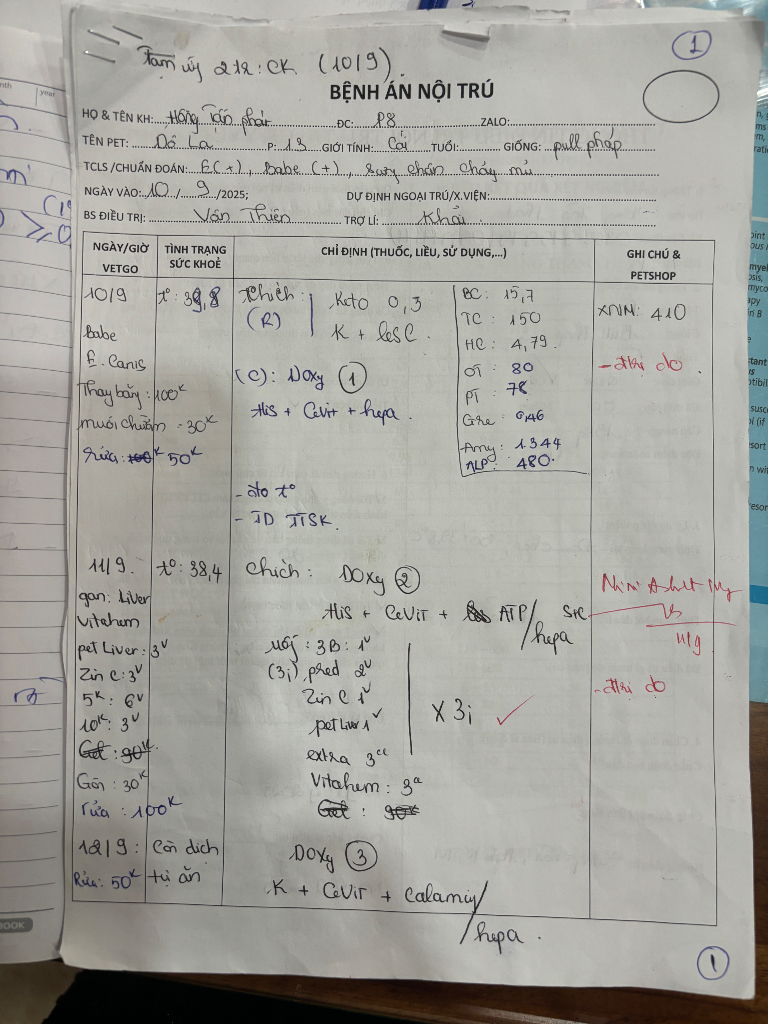 Tạm ứng 2tr: CK (10/9)
1
BỆNH ÁN NỘI TRÚ
HỌ & TÊN KH: Hồng Tấn phát ĐC: P8 ZALO:
TÊN PET: Đô La P: 13 GIỚI TÍNH: Cái TUỔI: GIỐNG: pull pháp
TCLS /CHUẨN ĐOÁN: E(+), Babe (+), sưng chân chảy mủ
NGÀY VÀO: 10 / 9 /2025; DỰ ĐỊNH NGOẠI TRÚ/X.VIỆN:
BS ĐIỀU TRỊ: Văn Thiên TRỢ LÍ: Khải
NGÀY/GIỜ VETGO
TÌNH TRẠNG SỨC KHOẺ
CHỈ ĐỊNH (THUỐC, LIỀU, SỬ DỤNG,...)
GHI CHÚ & PETSHOP
10/9
Babe
E. Canis
Thay băng: 100K
muối chườm - 30K
Rửa: 50K
t°: 39,8
Chích:
(R)
Keto 0,3
K + lesC
(C): Doxy 1
His + CeViT + hepa.
- đo t°
- TD TTSK.
BC: 15,7
TC: 150
HC: 4,79
OT: 80
PT: 78
Cre: 0,46
Amy: 1344
ALP: 480.
XNM: 410
- thị do.
11/9.
gan: Liver
Vitahem
pet Liver: 3V
Zin C: 3V
5K: 6V
10K: 3V
Gòn: 30K
rửa: 100K
t°: 38,4
Chích: Doxy 2
His + CeViT + ATP/hepa
uống: 3B: 1V
(3i) pred 2V
Zin C 1V
pet Liver 1V
extra 3cc
Vitahem: 3a
X 3i
11/9
- thị do
12/9:
Rửa: 50K
Còn dịch
tự ăn
Doxy 3
K + CeViT + Calamin/hepa.
1
BOOK